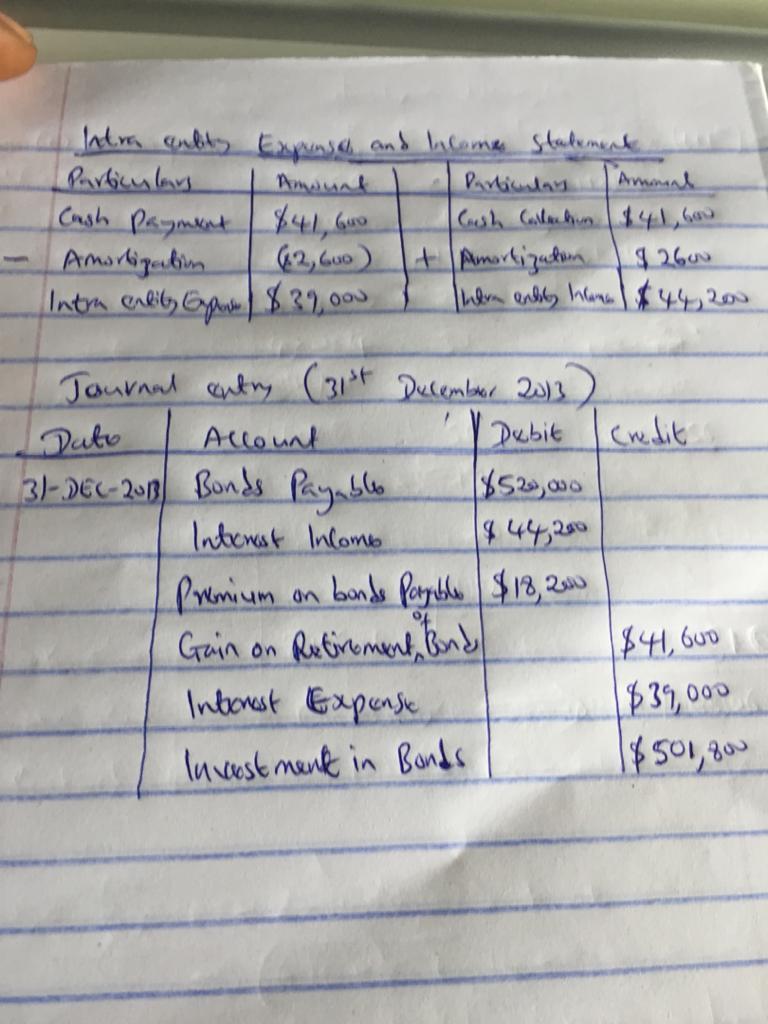 Intra entity Expenses and Incomes Statement
Particulars Amount Particulars Amount
Cash Payment $41,600 Cash Collection $41,600
- Amortization ($2,600) + Amortization $2600
Intra entity Expense $39,000 Intra entity Income $44,200
Journal entry (31st December 2013)
Date Account Debit Credit
31-DEC-2013 Bonds Payable $520,000
Interest Income $44,200
Premium on bonds Payable $18,200
Gain on Retirement of Bonds $41,600
Interest Expense $39,000
Investment in Bonds $501,800